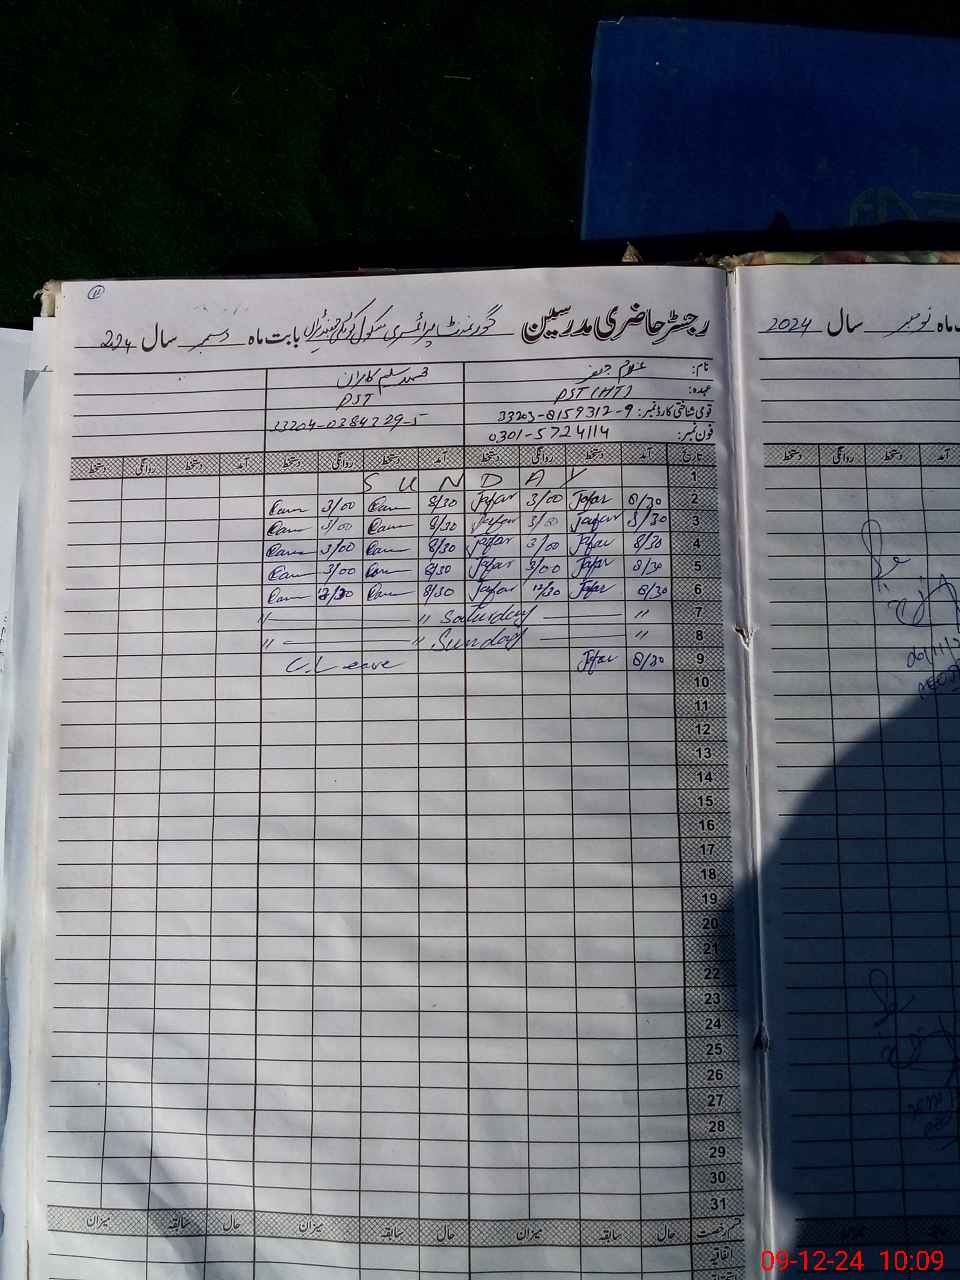 11
رجسٹر حاضری مدرسین گورنمنٹ پرائمری سکول بابت ماہ دسمبر سال 2024
نام: غلام جعفر
عہدہ: PST (HT) PST
قومی شناختی کارڈ نمبر: 33203-8159312-9 33204-0384729-5
فون نمبر: 0301-5724114
تاریخ آمد دستخط روانگی دستخط آمد دستخط روانگی دستخط آمد دستخط روانگی دستخط
1 SUNDAY
2 8/30 Jafar 3/00 Jafar 8/30 3/00
3 8/30 Jafar 3/00 Jafar 8/30 3/00
4 8/30 Jafar 3/00 Jafar 8/30 3/00
5 8/30 Jafar 3/00 Jafar 8/30 3/00
6 8/30 Jafar 12/30 Jafar 8/30 12/30
7 〃 — Saturday 〃 — 〃
8 〃 — Sunday 〃 — 〃
9 8/30 Jafar C.Leave
10
11
12
13
14
15
16
17
18
19
20
21
22
23
24
25
26
27
28
29
30
31
قسم رخصت حال سابقہ میزان حال سابقہ میزان حال سابقہ میزان
اتفاقیہ
ماہ نومبر سال 2024
آمد دستخط روانگی دستخط
09-12-24 10:09